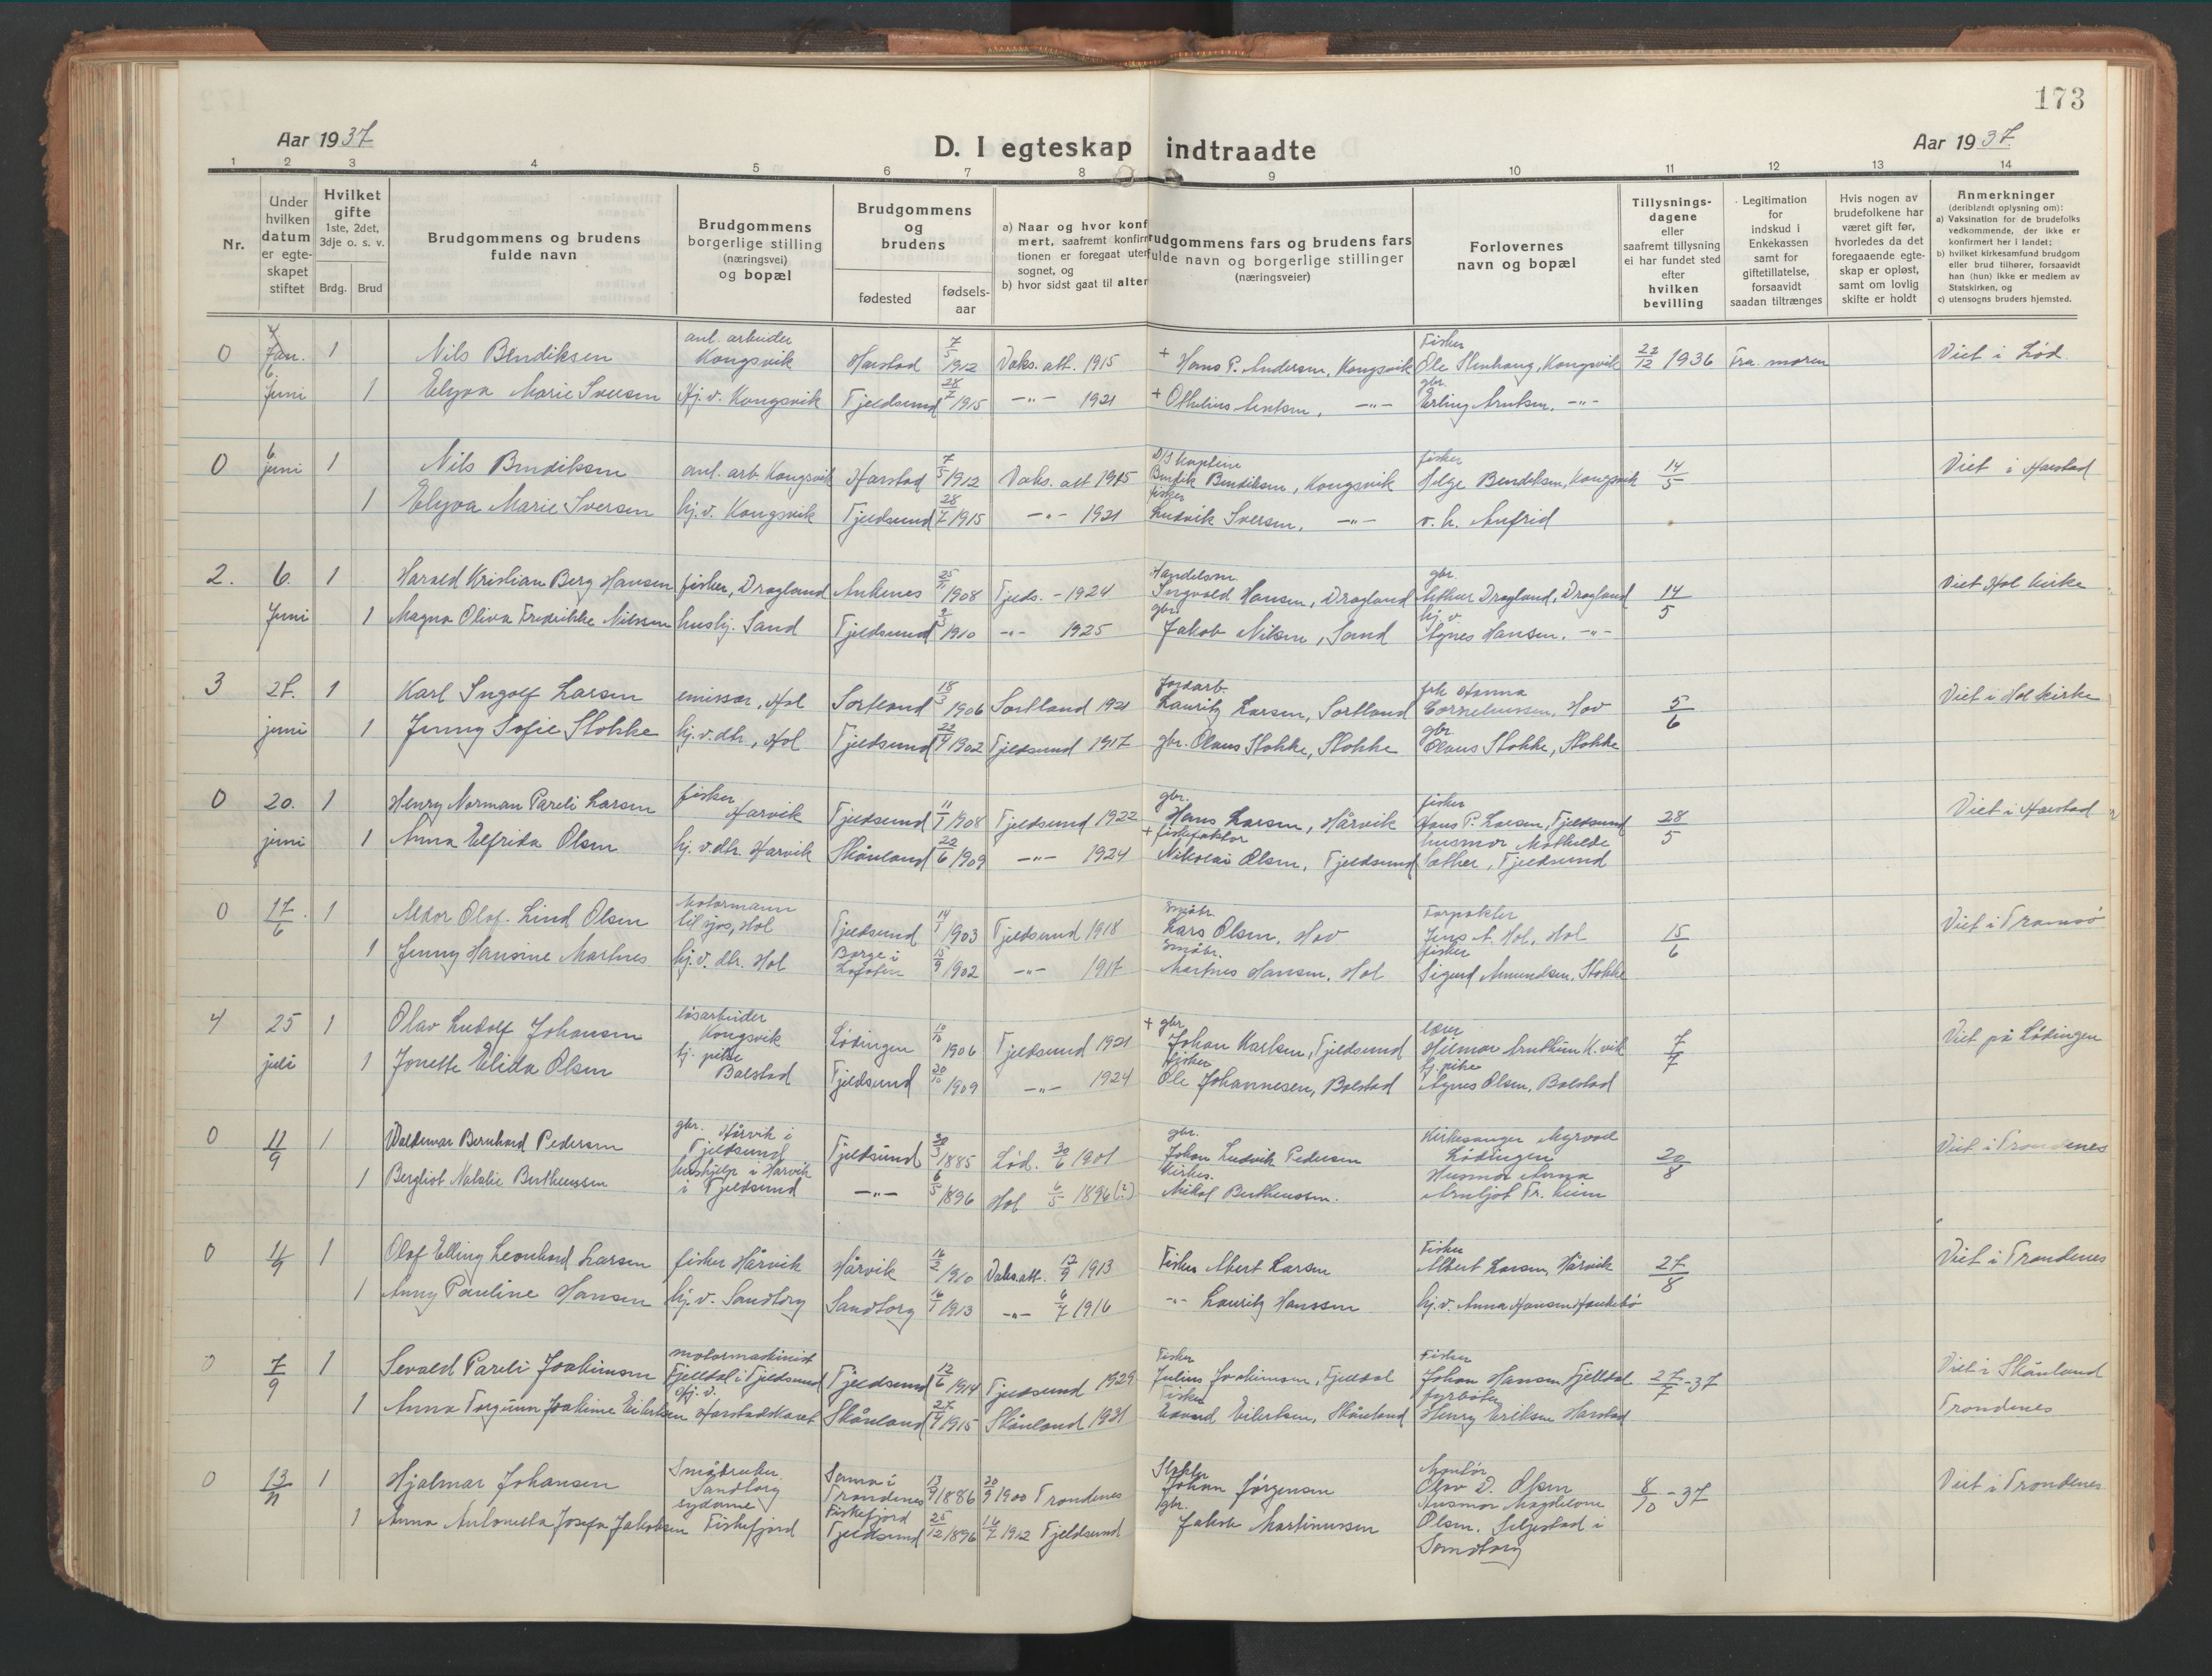 173
Aar 1937
D. I egteskap indtraadte
Aar 1937.
1 2 3 4 5 6 7 8 9 10 11 12 13 14
Nr.
Under hvilken datum er egte-skapet stiftet
Hvilket gifte 1ste, 2det, 3dje o. s. v.
Brdg. Brud
Brudgommens og brudens fulde navn
Brudgommens borgerlige stilling (næringsvei) og bopæl
Brudgommens og brudens
fødested
fødsels-aar
a) Naar og hvor konf
mert, saafremt konfirm
tionen er foregaat uten
sognet, og
b) hvor sidst gaat til alter
rudgommens fars og brudens fars
fulde navn og borgerlige stillinger
(næringsveier)
Forlovernes navn og bopæl
Tillysnings-dagene eller saafremt tillysning ei har fundet sted efter hvilken bevilling
Legitimation for indskud i Enkekassen samt for giftetillatelse, forsaavidt saadan tiltrænges
Hvis nogen av brudefolkene har været gift før, hvorledes da det foregaaende egte-skap er opløst, samt om lovlig skifte er holdt
Anmerkninger
(deriblandt oplysning om):
a) Vaksination for de brudefolks vedkommende, der ikke er konfirmert her i landet;
b) hvilket kirkesamfund brudgom eller brud tilhører, forsaavidt han (hun) ikke er medlem av Statskirken, og
c) utensogns bruders hjemsted.
0 Jan. 1 Nils Bendiksen anl. arbeider Kongsvik Harstad 7/5 1912 Vaks. att. 1915 + Hans P. Andersen, Kongsvik Fisker Ole Stenhaug, Kongsvik 22/12 1936 Fra. moren Viet i Lød.
6. Juni 1 Elyva Marie Iversen Hj. v. Kongsvik Tjeldsund 28/7 1915 -"- 1921 + Othelius Arntsen, -"- gbr. Erling Arntsen, -"-
0 6. juni 1 Nils Bendiksen anl. arb. Kongsvik Harstad 7/5 1912 Vaks. att 1915 D/S kaptein Bendik Bendiksen, Kongsvik fisker Helge Bendiksen, Kongsvik 14/5 Viet i Harstad
1 Elyva Marie Iversen hj. v. Kongsvik Tjeldsund 28/7 1915 -"- 1921 fisker Ludvik Iversen, -"- v. h. Anfrid
2. 6. 1 Harald Kristian Berg Hansen fisker, Dragland Ankenes 25/11 1908 Tjelds. - 1924 Handelsm. Ingvald Hansen, Dragland gbr. Arthur Dragland, Dragland 14/5 Viet Hol kirke
Juni 1 Magna Oliva Fredrikke Nilssen hushj. Sand Tjeldsund 1910 -"- 1925 gbr. Jakob Nilsen, Sand hj. v. Agnes Hansen, -"-
3 27. 1 Karl Ingolf Larsen emissær, Hol Sortland 18/3 1906 Sortland 1921 Jordarb. Lauritz Larsen, Sortland frk Hanna Corneliussen, Hov 5/6 Viet i Hol kirke
juni 1 Jenny Sofie Stokke hj. v. dtr, Hol Tjeldsund 22/4 1902 Tjeldsund 1917 gbr. Olaus Stokke, Stokke gbr Olaus Stokke, Stokke
0 20. 1 Henry Norman Pareli Larsen fisker Harvik Tjeldsund 11/1 1908 Tjeldsund 1922 gbr. Hans Larsen, Hårvik fisker Hans P. Larsen, Tjeldsund 28/5 Viet i Harstad
juni 1 Anna Elfrida Olsen hj. v. dtr. Harvik Skånland 22/6 1909 -"- 1924 + fiskefaktor Nikolai Olsen, Tjeldsund husmor Mathilde Sæther, Tjeldsund
0 17/6 1 Aldor Olaf Lind Olsen Motormann til sjøs, Hol Tjeldsund 14/1 1903 Tjeldsund 1918 Småbr. Lars Olsen, Hov Forpakter Jens A. Hol, Hol 15/6 Viet i Tromsø
1 Jenny Hansine Martnes hj. v. dtr. Hol Borge i Lofoten 15/9 1902 -"- 1917 Småbr. Martnes Hansen, Hol fisker Sigurd Amundsen, Stokke
4 25 1 Olav Ludolf Johansen løsarbeider Kongsvik Lødingen 10/10 1906 Tjeldsund 1921 + gbr Johan Karlsen, Tjeldsund lærer Hilmar Arntsen K.vik 7/7 Viet på Lødingen
juli 1 Jonette Elida Olsen tj. pike Balstad Tjeldsund 20/10 1909 -"- 1924 fisker Ole Johannesen, Balstad tj. pike Agnes Olsen, Balstad
0 11/9 1 Waldemar Bernhard Pedersen gbr. Hårvik i Tjeldsund Tjeldsund 1885 Lød. 30/6 1901 gbr. Johan Ludvik Pedersen Kirkesanger Myrvod Lødingen 20/8 Viet i Trondenes
1 Bergliot Natalie Bertheussen hushjelp i Harvik i Tjeldsund -"- 6/5 1896 Hol 6/5 1896 (?) Kirkes. Mikal Bertheussen. Husmor Anna
0 4/9 1 Olaf Elling Leonhard Larsen fisker Hårvik Hårvik 16/2 1910 Vaks.att. 12/9 1913 Fisker Albert Larsen Fisker Albert Larsen, Hårvik 27/8 Viet i Trondenes
1 Anny Pauline Hansen hj. v. Sandtorg Sandtorg 16/1 1913 -"- 6/7 1916 -"- Lauritz Hanssen hj. v. Anna Hansen
0 7/9 1 Sevald Pareli Joakimsen motormaskinist Fjelldal i Tjeldsund Tjeldsund 12/6 1914 Tjeldsund 1929 Fisker Julius Joakimsen, Fjelldal Fisker Johan Hansen Fjelldal 27/7 - 37 Viet i Skånland
1 Anna Torgunn Joakime Eilertsen Hj. v. Harstadskaret Skånland 27/4 1915 Skånland 1931 Fisker Edvard Eilertsen, Skånland fyrbøter Henry Eriksen Harstad Trondenes
0 13/11 1 Hjalmar Johansen Småbruker Sandtorg Sama i Trondenes 13/9 1886 20/9 1900 Trondenes Slakter Johan Jørgensen Montør Olav D. Olsen 8/10 - 37 Viet i Trondenes
1 Anna Antonetta Josefa Jakobsen sydame Fiskefjord Fiskefjord Tjeldsund 25/12 1896 14/7 1912 Tjeldsund gbr. Jakob Martinussen Husmor Magdelone Olsen, Seljestad i Sandtorg